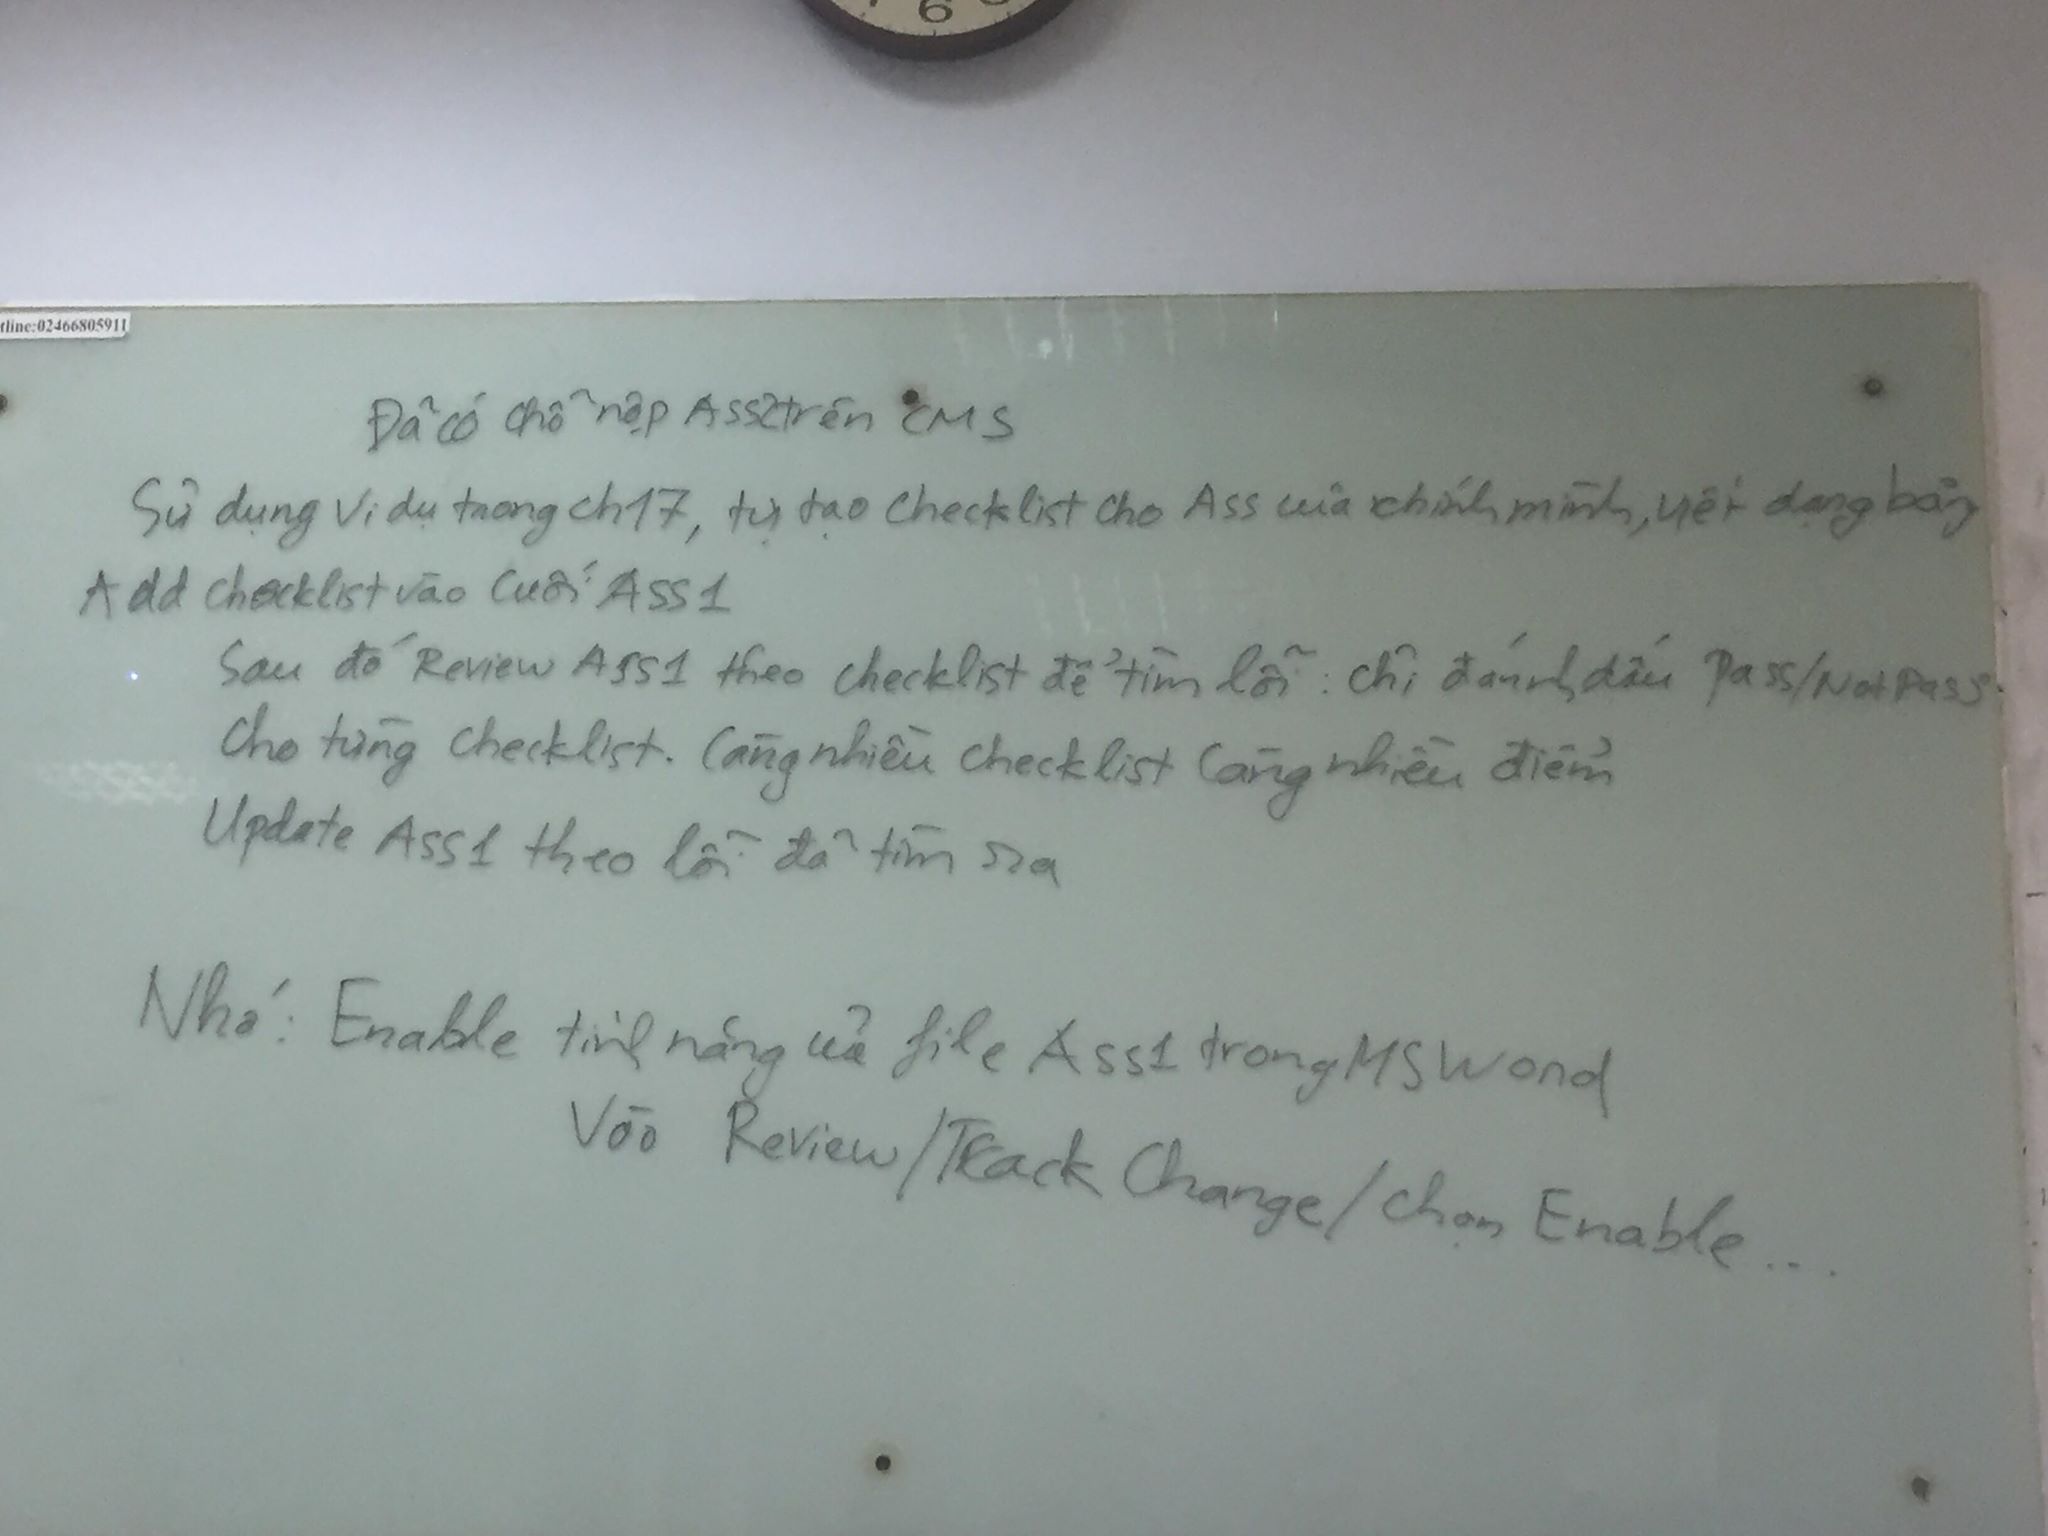 6
tline:02466805911
Đã có chỗ nộp Ass2 trên CMS
Sử dụng ví dụ trong ch17, tự tạo checklist cho Ass của chính mình, viết dạng bảng
Add checklist vào cuối Ass1
Sau đó Review Ass1 theo checklist để tìm lỗi: chỉ đánh dấu Pass/Not Pass
Cho từng checklist. Càng nhiều checklist càng nhiều điểm
Update Ass1 theo lỗi đã tìm ra
Nhớ: Enable tính năng của file Ass1 trong MS Word
Vào Review/Track Change/chọn Enable...